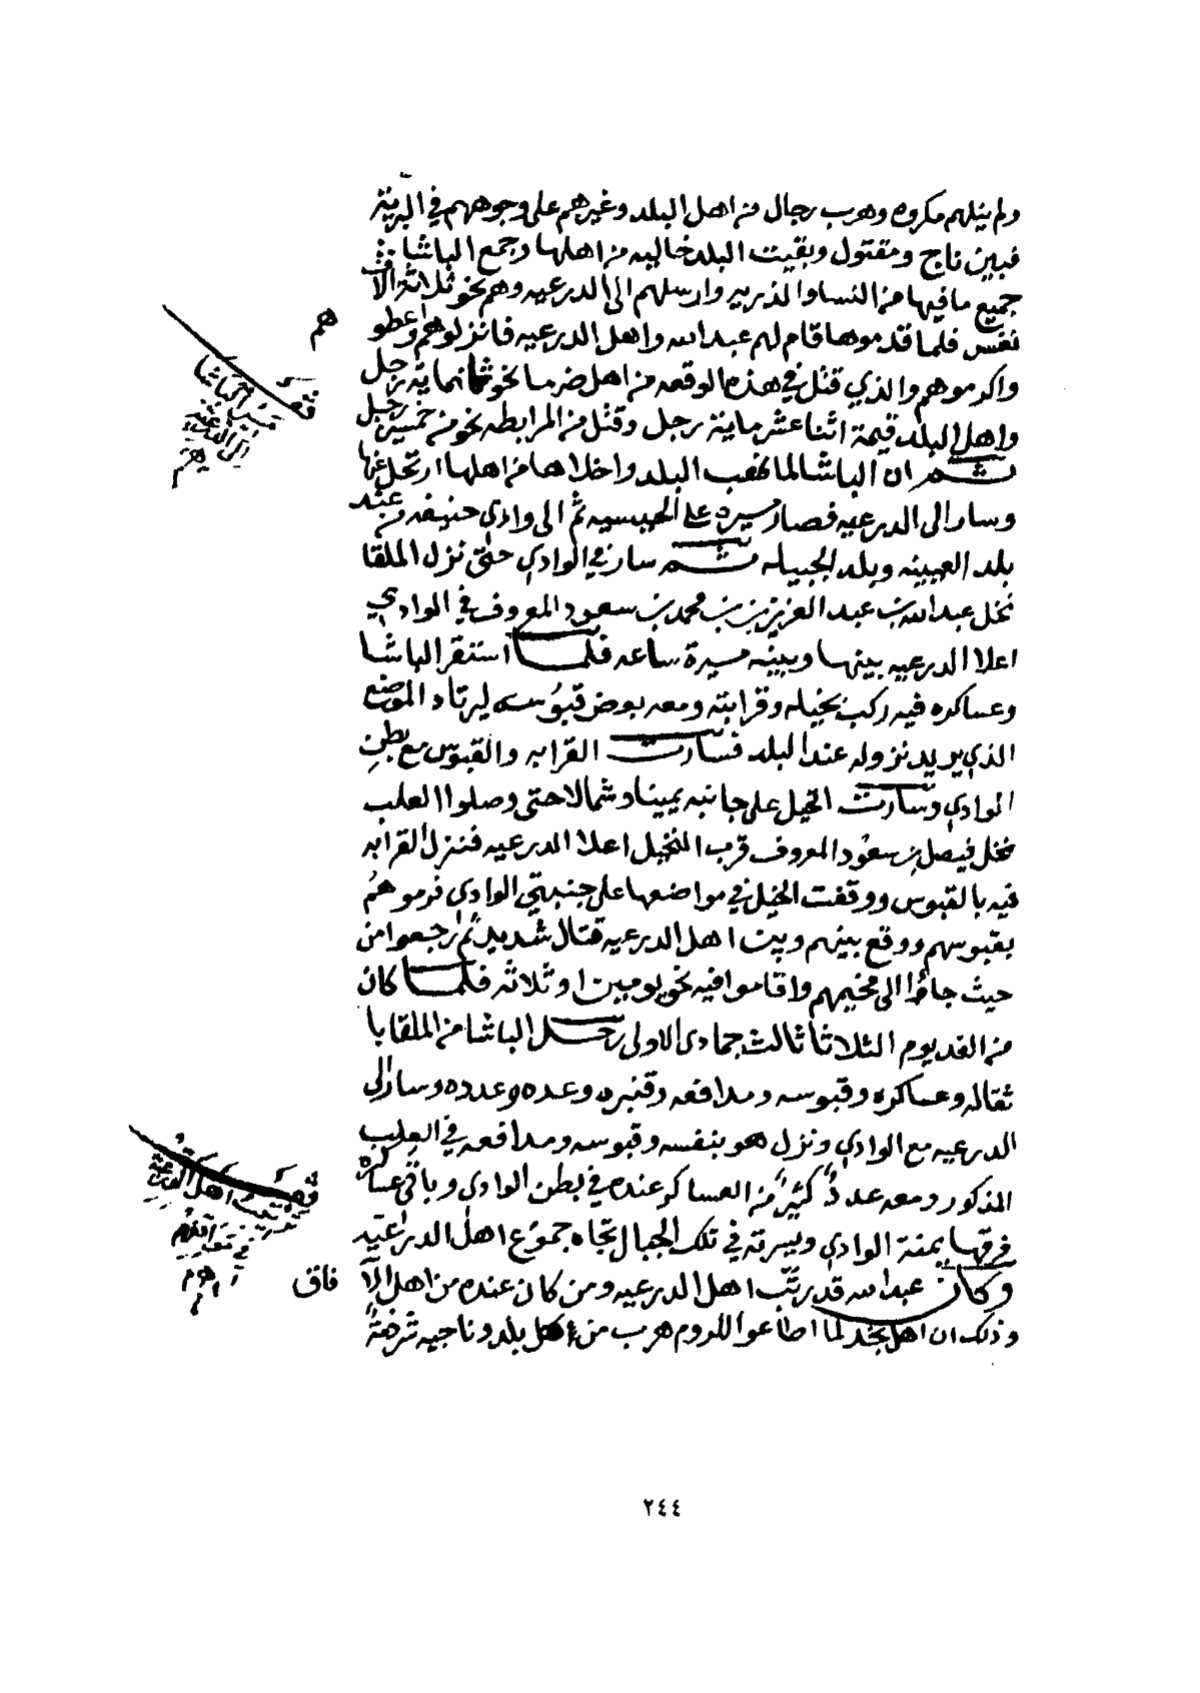 ولم ينلهم مكروه وهرب رجال من اهل البلد وغيرهم على وجوههم في البرية
فبين ناج ومقتول وبقيت البلد خاليه من اهلها وجمع الباشا
جميع ما فيها من النسا والذريه وارسلهم الى الدرعيه وهم نحو ثلاثة الاف
نفس فلما قدموها قام لهم عبدالله واهل الدرعيه فانزلوهم واعطو
هم
واكرموهم والذي قتل في هذه الوقعه من اهل ضرما نحو ثمانماية رجل
واهل البلد قيمة اثنا عشر ماية رجل وقتل من المرابطه نحو من خمسين رجل
ثم ان الباشا لما نهب البلد واخلاها من اهلها ارتحل عنها
وسار الى الدرعيه فصار مسيره على الحيسيه ثم الى وادي حنيفه من عند
بلد العيينه وبلد الجبيله ثم سار في الوادي حتى نزل الملقا
نخل عبدالله بن عبد العزيز بن محمد بن سعود المعروف في الوادي
اعلا الدرعيه بينها وبينه مسيرة ساعه فلما استقر الباشا
وعساكره فيه ركب بخيله وقرابته ومعه بعض قبوسه ليرتاد الموضع
الذي يريد نزوله عند البلد فسارت القرابه والقبوس مع بطن
الوادي وسارت الخيل على جانبه يمينا وشمالا حتى وصلوا العلب
نخل فيصل بن سعود المعروف قرب النخيل اعلا الدرعيه فنزل القرابه
فيه بالقبوس ووقفت الخيل في مواضعها على جنبتي الوادي فرموهم
بقبوسهم ووقع بينهم وبين اهل الدرعيه قتال شديد ثم رجعوا من
حيث جاؤا الى مخيمهم واقاموا فيه نحو يومين او ثلاثه فلما كان
من الغد يوم الثلاثا ثالث جمادى الاولى رحل الباشا من الملقا با
ثقاله وعساكره وقبوسه ومدافعه وقنبره وعدده وعدده وسار الى
الدرعيه مع الوادي ونزل هو بنفسه وقبوسه ومدافعه في العلب
المذكور ومعه عدد كثير من العساكر عنده في بطن الوادي وباقي عساكره
فرقها يمنة الوادي ويسرته في تلك الجبال تجاه جموع اهل الدرعيه
وكان عبدالله قد رتب اهل الدرعيه ومن كان عنده من اهل الآ
فاق
وذلك ان اهل نجد لما اطاعوا للروم هرب من اهل بلد وناحيه شرذمة
قف
مسير الباشا
الى الدرعيه
قف
ترتيب اهل الدرعيه
٢٤٤